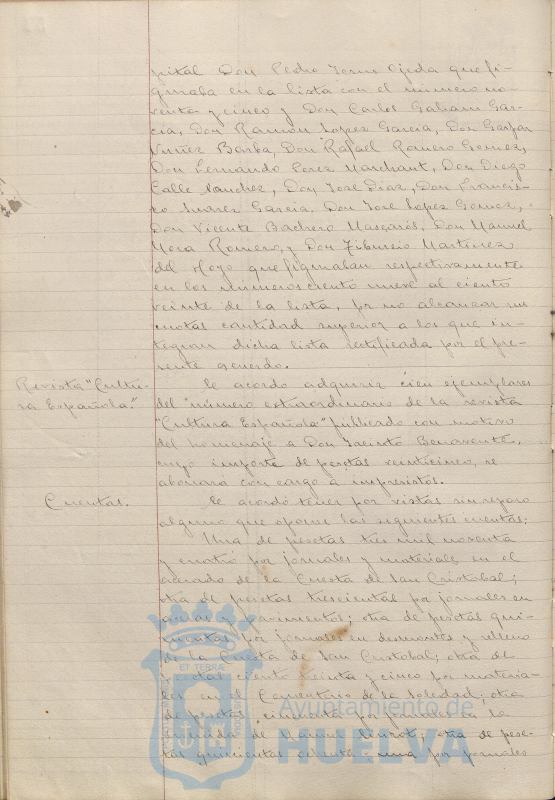 pital Don Pedro Ojeda que fi-
guraba en la lista con el número no-
venta y cinco y Don Carlos Galiani Gar-
cia, Don Ramón Lopez Garcia, Don Gaspar
Nuñez Barba, Don Rafael Romero Gomez,
Don Fernando Perez Marchant, Don Diego
Calle Sanchez, Don José Diaz, Don Francis-
co Suarez Garcia, Don José Lopez Gomez,
Don Vicente Bachero Mascarós, Don Manuel
Mora Romero, y Don Tiburcio Martinez
del Hoyo que figuraban respectivamente
en los números ciento nueve al ciento
veinte de la lista, por no alcanzar sus
cuotas cantidad superior a los que in-
tegran dicha lista rectificada por el pre-
sente acuerdo.
Revista "Cultu-
ra Española."
Se acordó adquirir cien ejemplares
del número extraordinario de la revista
"Cultura Española" publicado con motivo
del homenaje a Don Jacinto Benavente,
cuyo importe de pesetas veinticinco, se
abonará con cargo a imprevistos.
Cuentas.
Se acordó tener por vistas sin reparo
alguno que oponer las siguientes cuentas:
Una de pesetas tres mil noventa
y cuatro por jornales y materiales en el
acerado de la Cuesta de San Cristobal;
otra de pesetas trescientas por jornales en
aceras y pavimentos; otra de pesetas qui-
nientas por jornales en desmontes y relleno
de la Cuesta de San Cristobal; otra de
pesetas ciento treinta y cinco por materia-
les en el Cementerio de la Soledad; otra
de pesetas cincuenta por jornales en la
de pese-
tas quinientas ochenta y una por jornales
ET TERRÆ
Ayuntamiento de
HUELVA